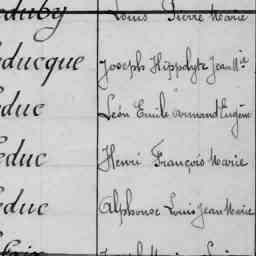 Louis Pierre Marie
educque Joseph Hippolyte Jean M.ie
educ Léon Emile Armand Eugène
educ Henri François Marie
educ Alphonse Louis Jean Marie